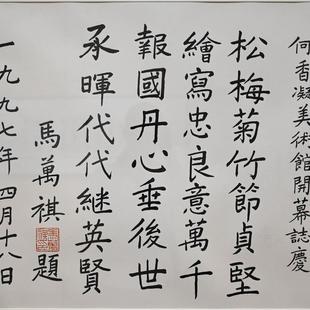 何香凝美術館開幕誌慶
松梅菊竹節貞堅
繪寫忠良意萬千
報國丹心垂後世
承暉代代継英賢
馬萬祺題
一九九七年四月十八日